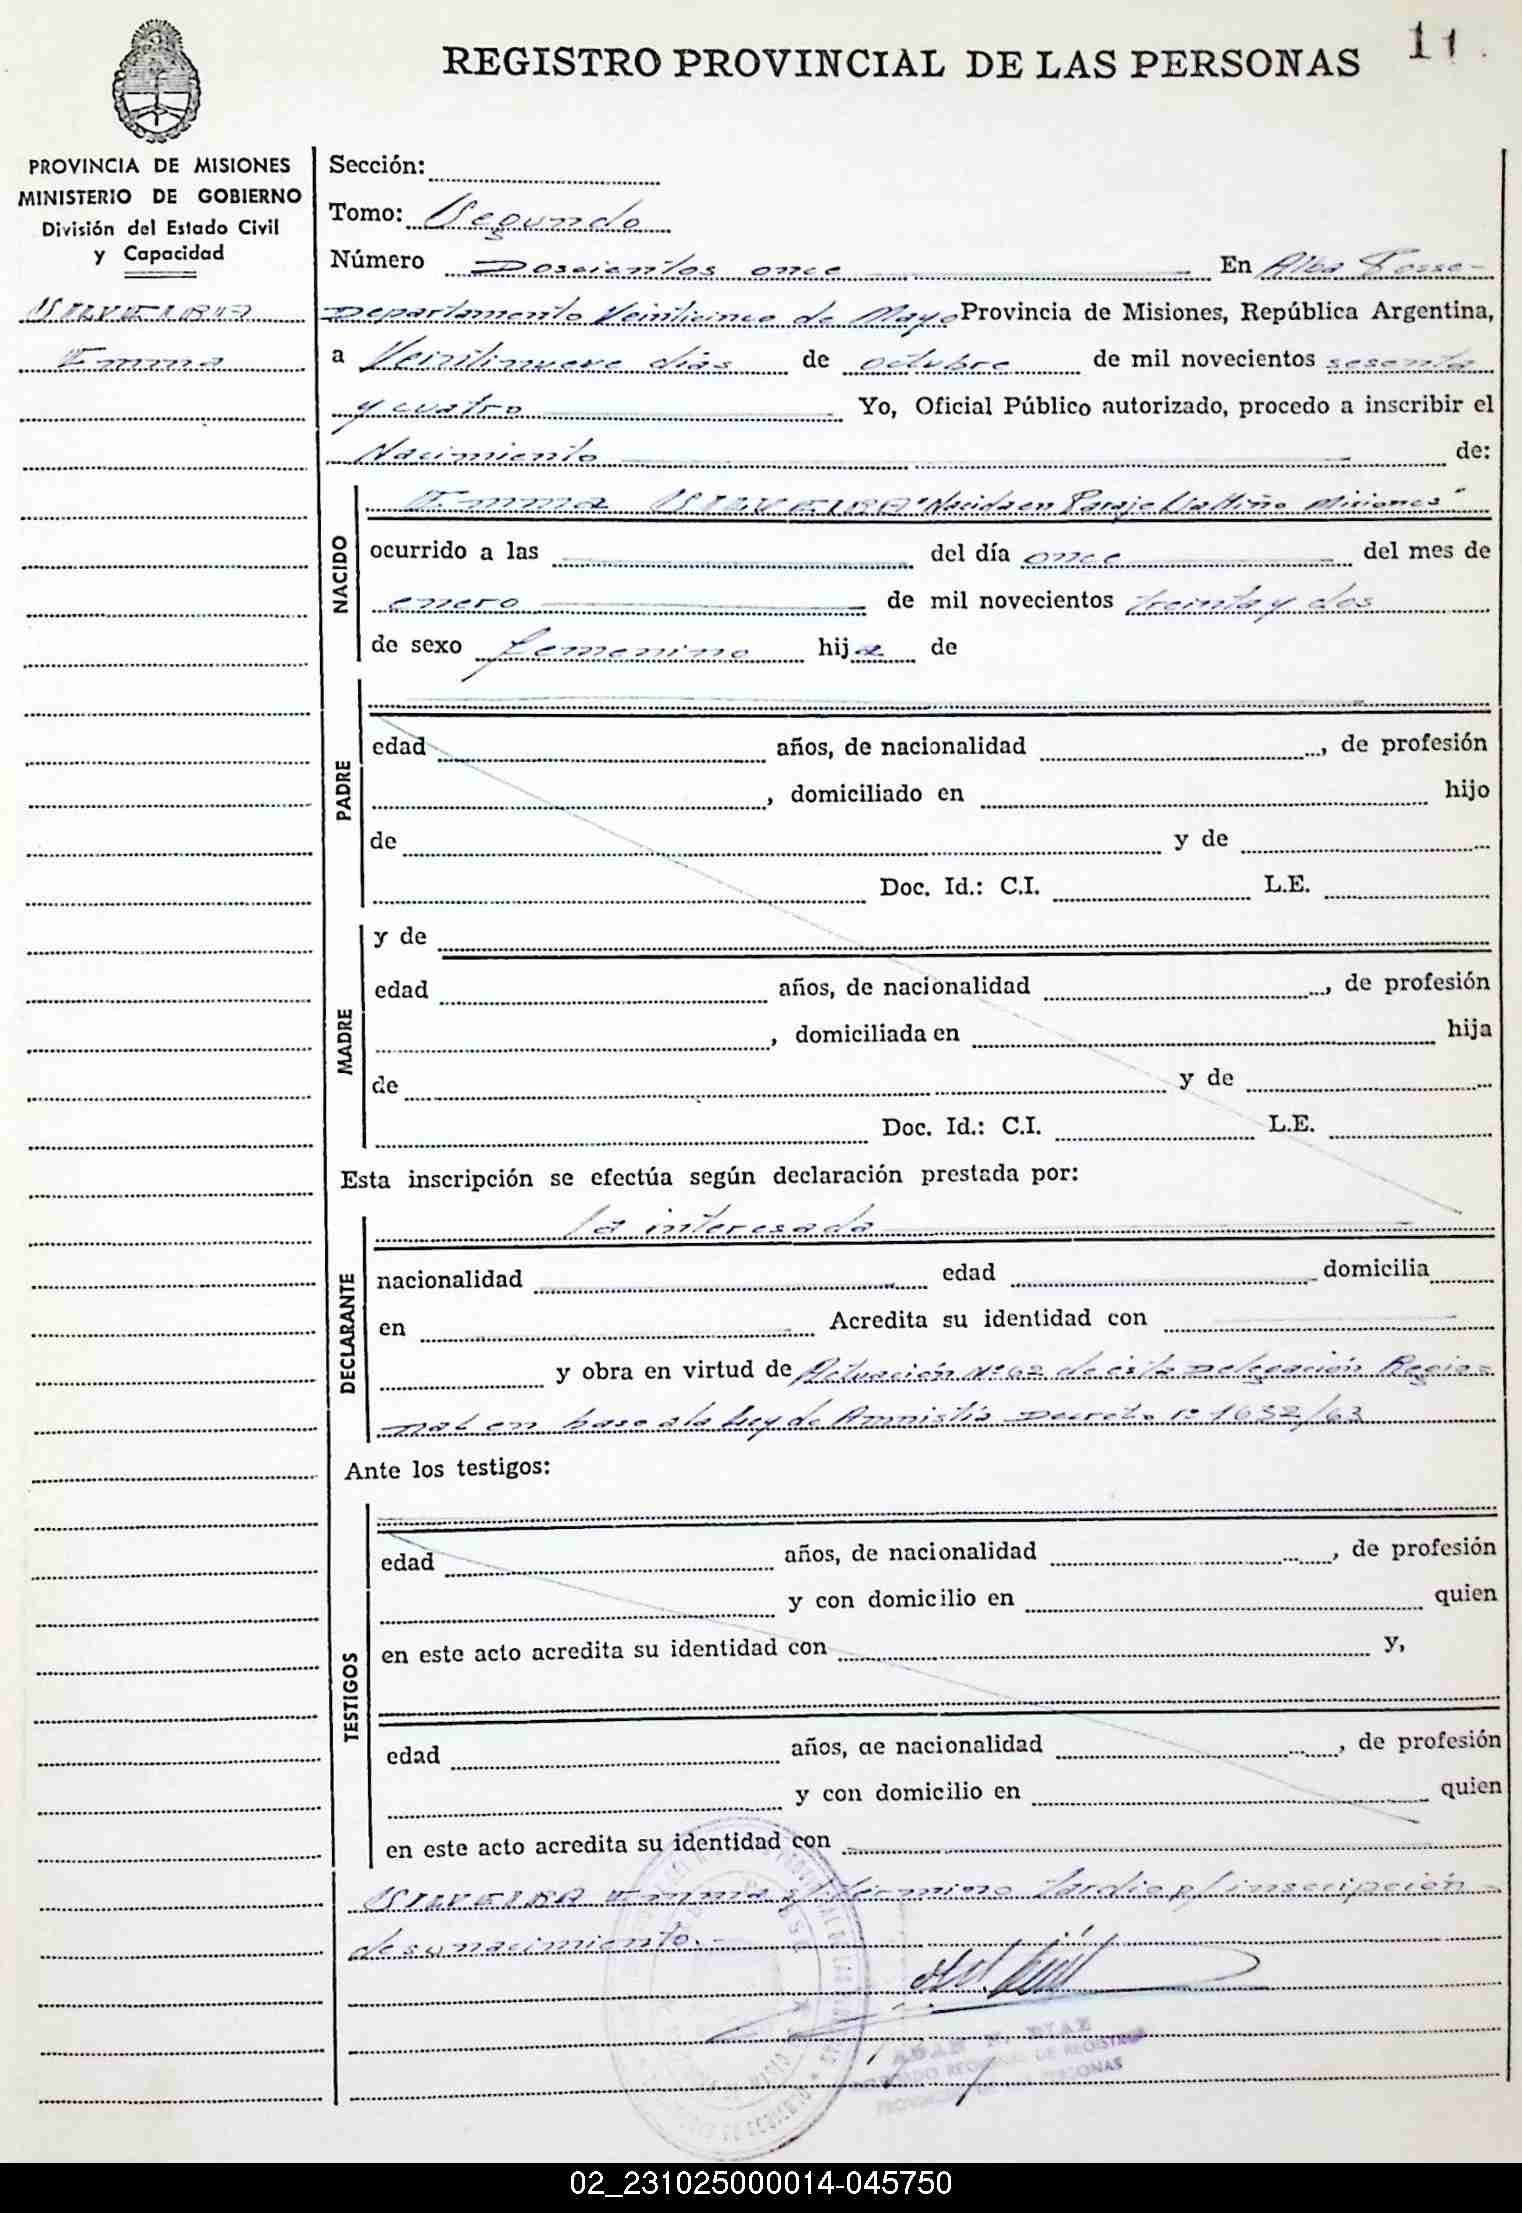 REGISTRO PROVINCIAL DE LAS PERSONAS
11
PROVINCIA DE MISIONES
MINISTERIO DE GOBIERNO
División del Estado Civil
y Capacidad
SILVEIRA
Emma
Sección:
Tomo: Segundo
Número Doscientos once En Alba Posse
Departamento Veinticinco de Mayo Provincia de Misiones, República Argentina,
a Veintinueve días de octubre de mil novecientos sesenta
y cuatro Yo, Oficial Público autorizado, procedo a inscribir el
Nacimiento de:
NACIDO
Emma SILVEIRA "Nacida en Paraje Misiones"
ocurrido a las del día once del mes de
enero de mil novecientos treinta y dos
de sexo femenino hija de
PADRE
edad años, de nacionalidad , de profesión
, domiciliado en hijo
de y de
Doc. Id.: C.I. L.E.
MADRE
y de
edad años, de nacionalidad , de profesión
, domiciliada en hija
de y de
Doc. Id.: C.I. L.E.
Esta inscripción se efectúa según declaración prestada por:
DECLARANTE
la interesada
nacionalidad edad domicilia
en Acredita su identidad con
y obra en virtud de Actuación Nº 62 de esta Delegación Regio-
nal en base a la Ley de Amnistía Decreto nº 1632/63
Ante los testigos:
TESTIGOS
edad años, de nacionalidad , de profesión
y con domicilio en quien
en este acto acredita su identidad con y,
edad años, de nacionalidad , de profesión
y con domicilio en quien
en este acto acredita su identidad con
SILVEIRA Emma s/ término tardío p/ inscripción
de su nacimiento.-
DE REGISTRO
PERSONAS
02_231025000014-045750